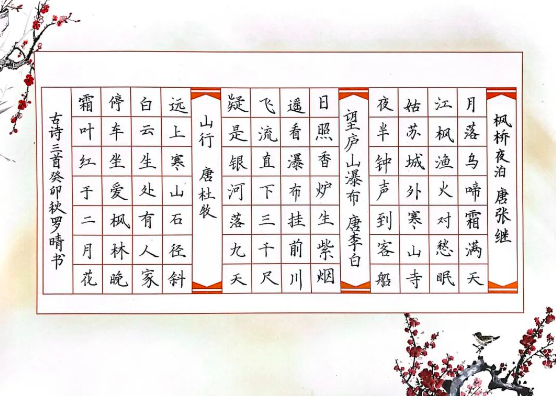 枫桥夜泊 唐张继
月落乌啼霜满天
江枫渔火对愁眠
姑苏城外寒山寺
夜半钟声到客船
望庐山瀑布 唐李白
日照香炉生紫烟
遥看瀑布挂前川
飞流直下三千尺
疑是银河落九天
山行 唐杜牧
远上寒山石径斜
白云生处有人家
停车坐爱枫林晚
霜叶红于二月花
古诗三首癸卯秋罗晴书